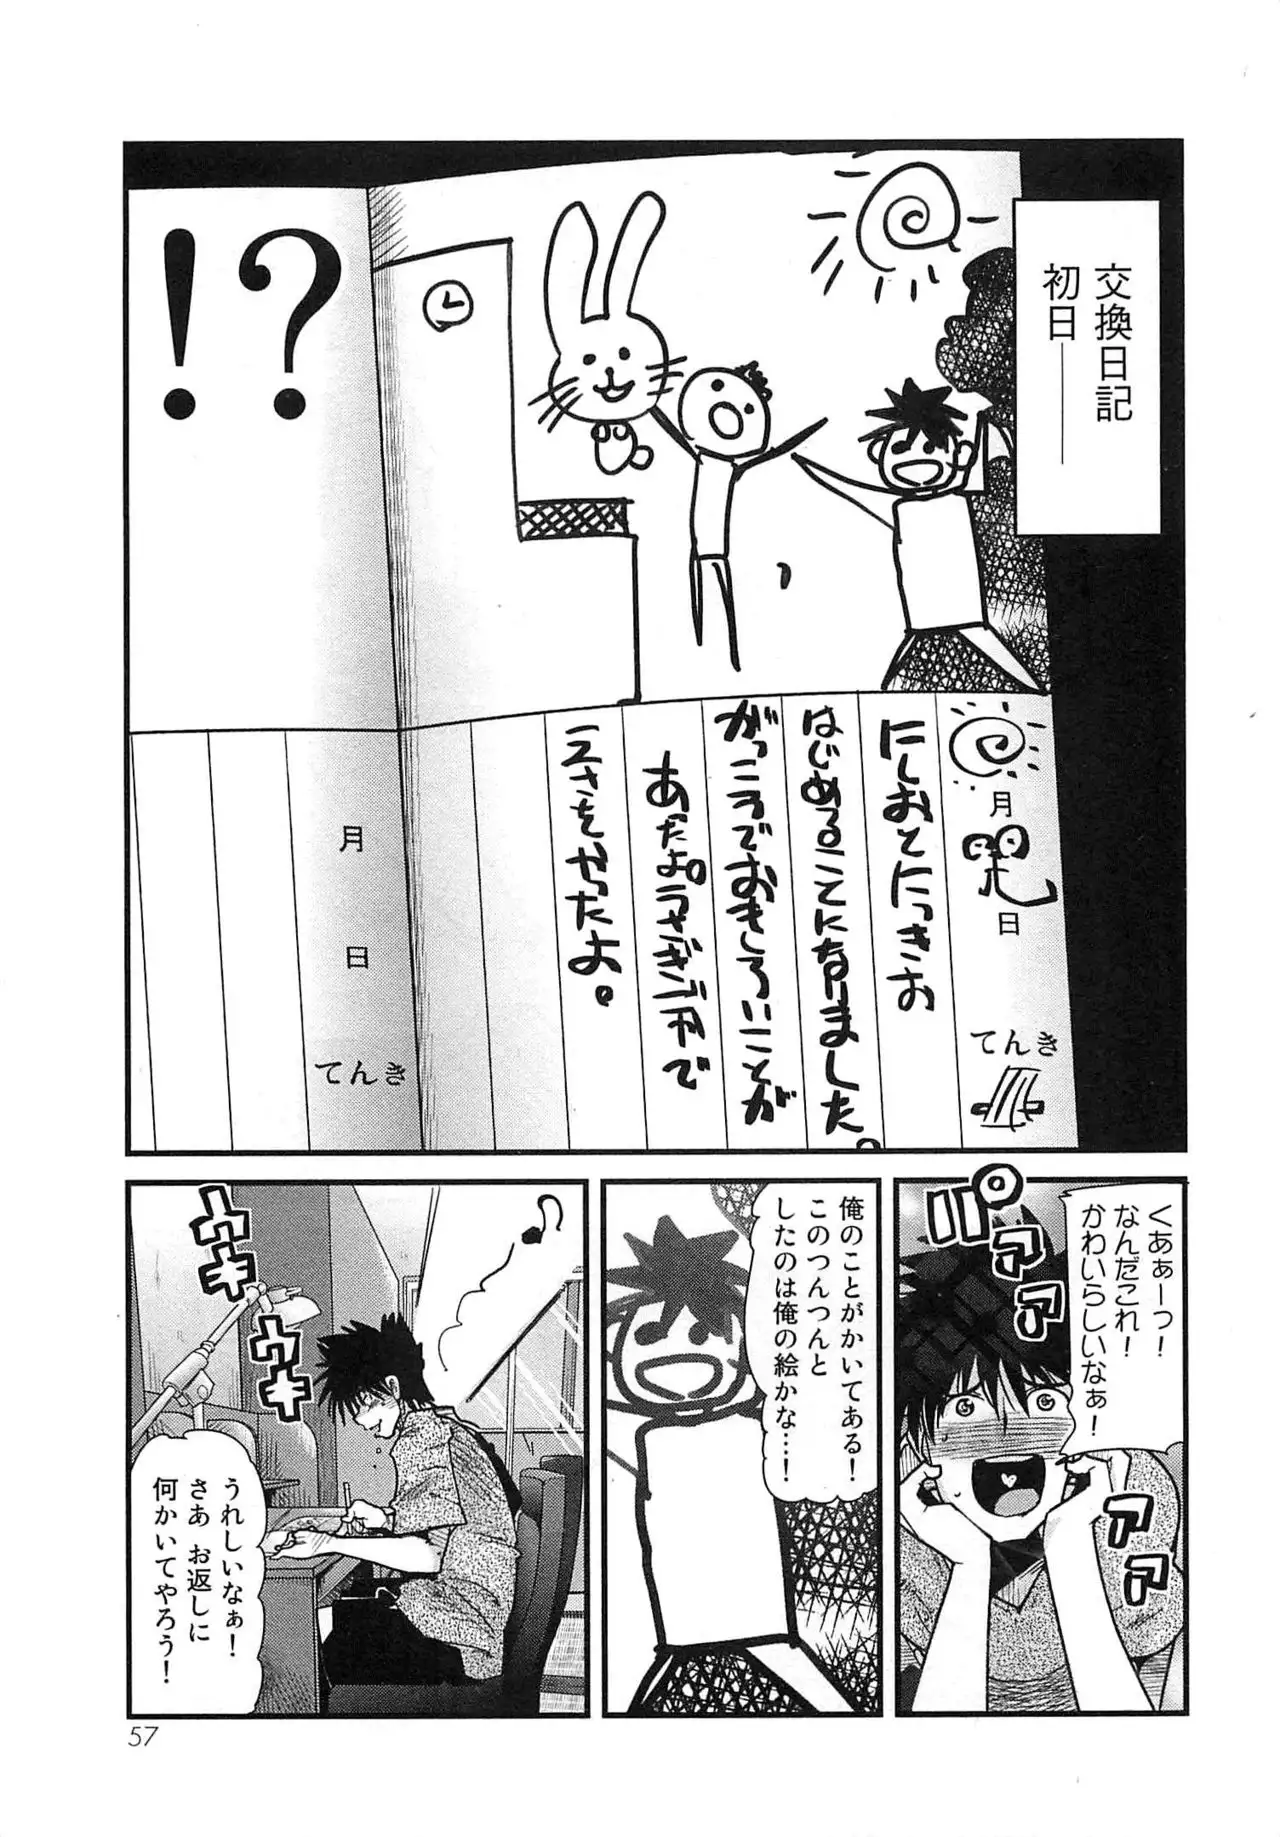 交換日記
初日――
!?
月
日
てんき
にしおとにっきお
はじめることになりました。
がっこうでおもしろいことが
あたよ。うさぎごやで
えさをやったよ。
月
日
てんき
パアアアア
くあぁーっ!
なんだこれ!
かわいらしいなぁ!
俺のことがかいてある!
このつんつんと
したのは俺の絵かな…!
ウキ
ウキ
うれしいなぁ!
さあ お返しに
何かいてやろう!
57